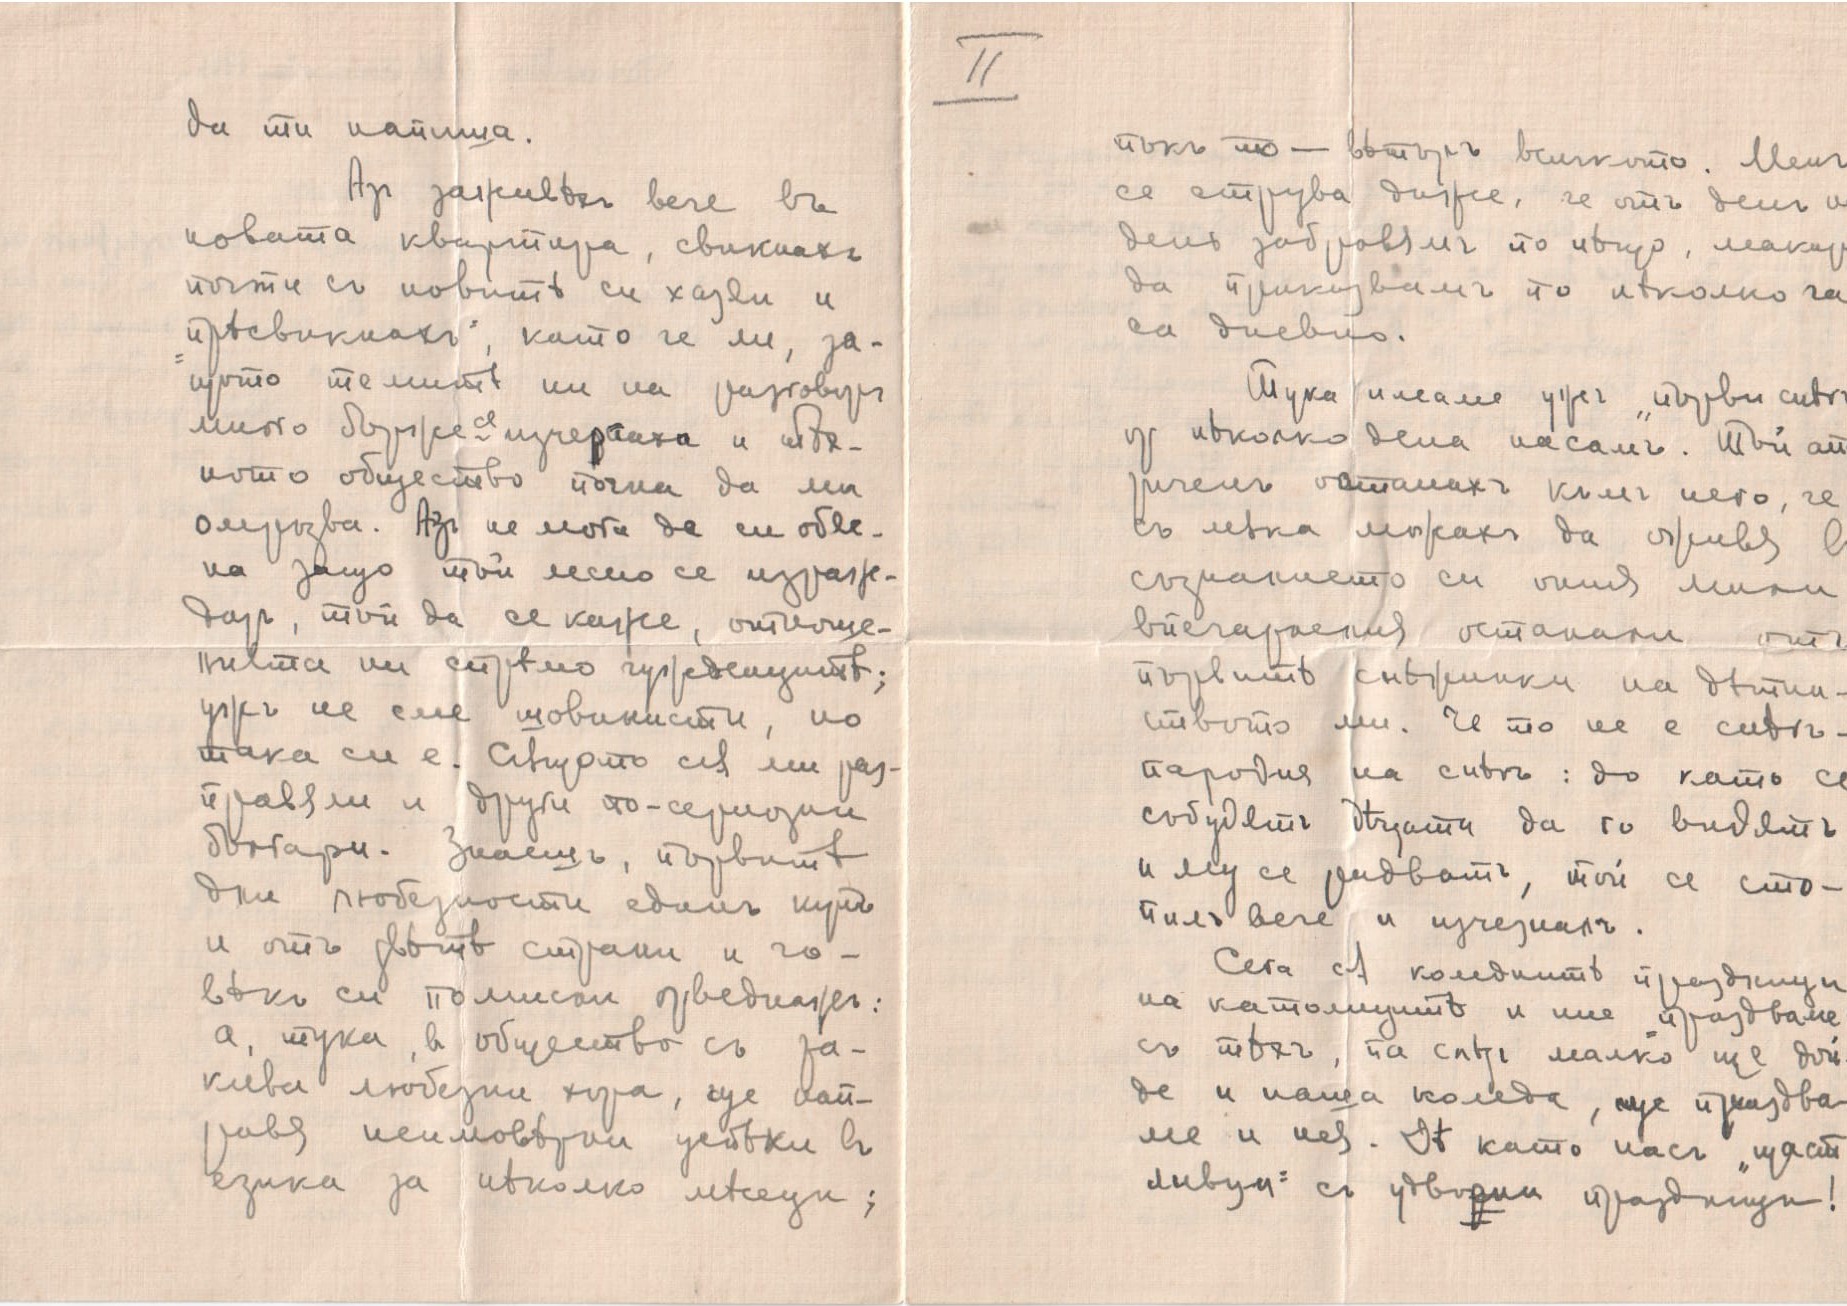 да ти напиша.
Азъ заживѣхъ вече въ
новата квартира, свикнахъ
почти съ новитѣ си хазяи и
"прѣсвикнахъ", като че ли, за-
щото темитѣ ни на разговоръ
много бърже се изчерпаха и тѣх-
ното общество почна да ми
омръзва. Азъ не мога да си обяс-
на защо тъй лесно се изражж-
датъ, тъй да се каже, отноше-
нията ни спрѣмо чужденцитѣ;
ужъ не сме шовинисти, но
така си е. Сѫщото сѫ ми раз-
правяли и други по-сериозни
българи. Знаешъ, първитѣ
дни любезности единъ купъ
и отъ двѣтѣ страни и чо-
вѣкъ си помисли изведнажъ:
а, тука, въ общество съ та-
кива любезни хора, ще нап-
равя неимовѣрни успѣхи въ
езика за нѣколко мѣсеци;
II
пъкъ то — вѣтъръ всичкото. Менъ
се струва даже, че отъ день на
день забравямъ по нѣщо, макаръ
да приказвамъ по нѣколко ча-
са дневно.
Тука имаме ужъ „първи снѣгъ
отъ нѣколко дена насамъ. Тъй ап
ричемъ останахъ къмъ него, че
съ мѣка можахъ да оживя въ
съзнанието си ония мили
впечатления останали отъ
първитѣ снѣжинки на дѣтин-
ството ми. Че то не е снѣгъ-
пародия на снѣгъ: до като се
събудятъ дѣцата да го видятъ
и му се радватъ, той се сто-
пилъ вече и изчезналъ.
Сега сѫ коледнитѣ праздници
на католицитѣ и ние праздваме
съ тѣхъ, па слѣдъ малко ще дой-
де и наша коледа, ще праздва-
ме и нея. Дѣ като насъ „щаст
ливци" съ удвоени праздници!